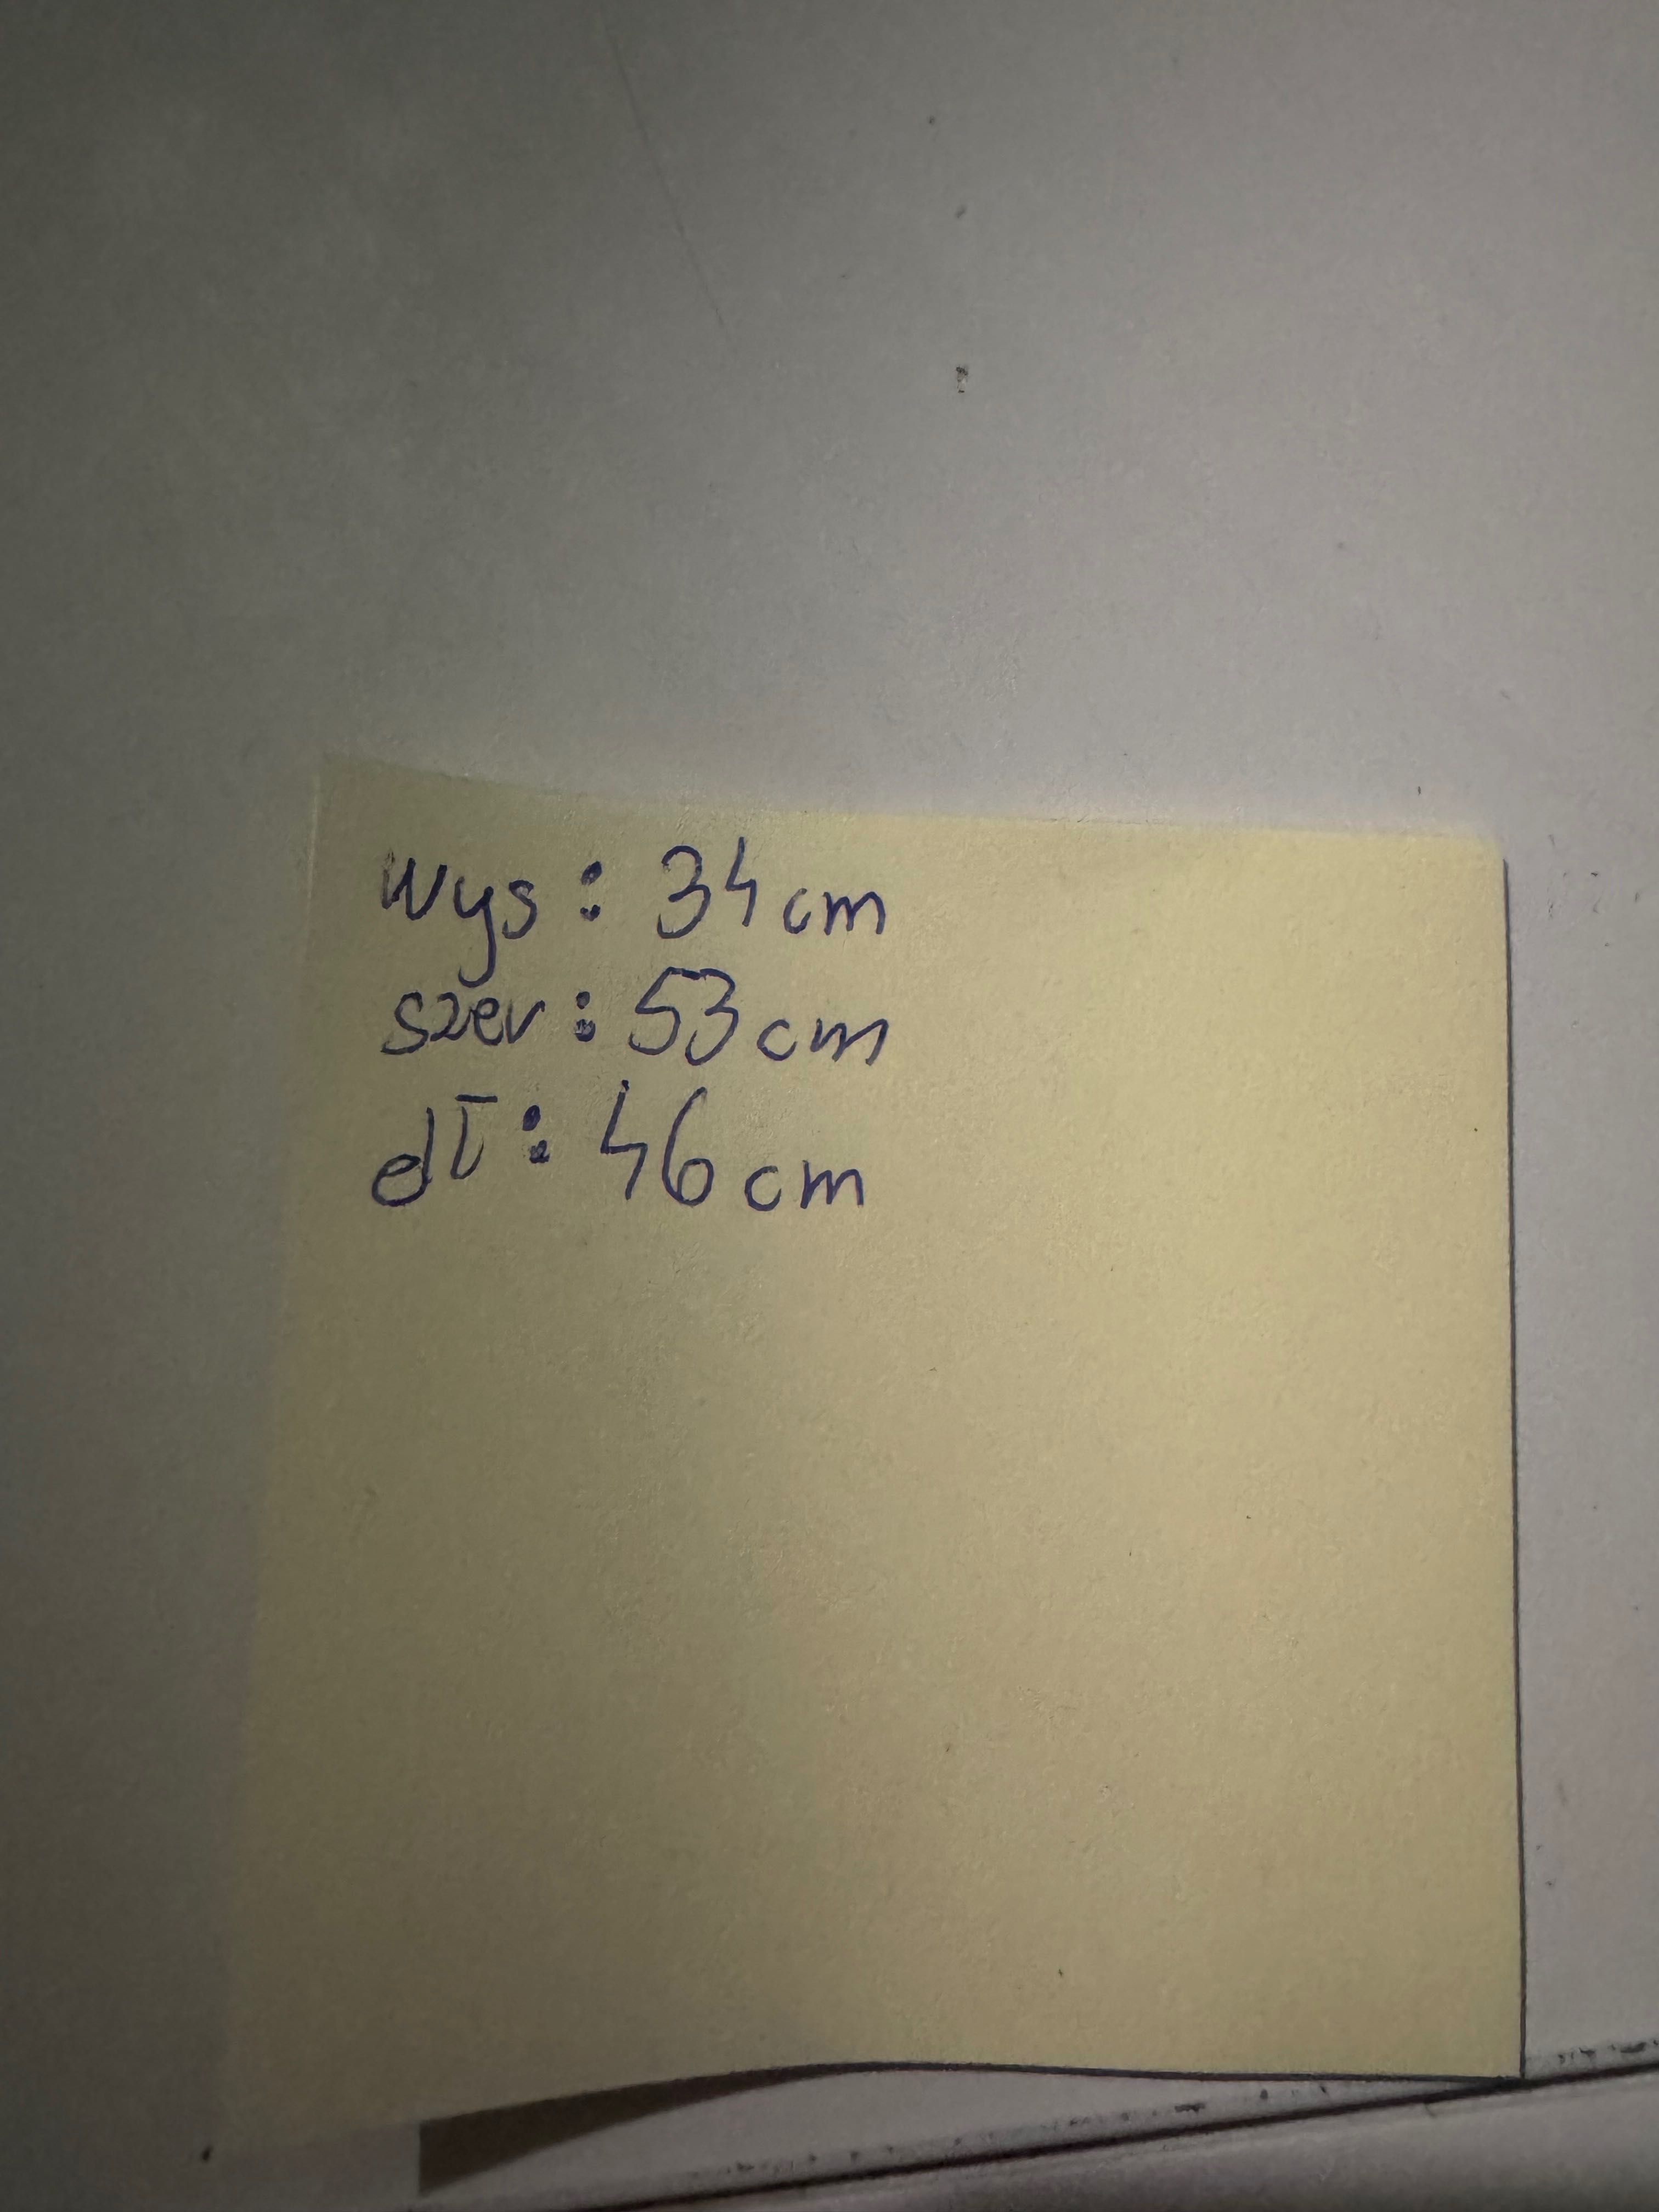 wys: 34cm
szer: 53cm
dł: 46cm